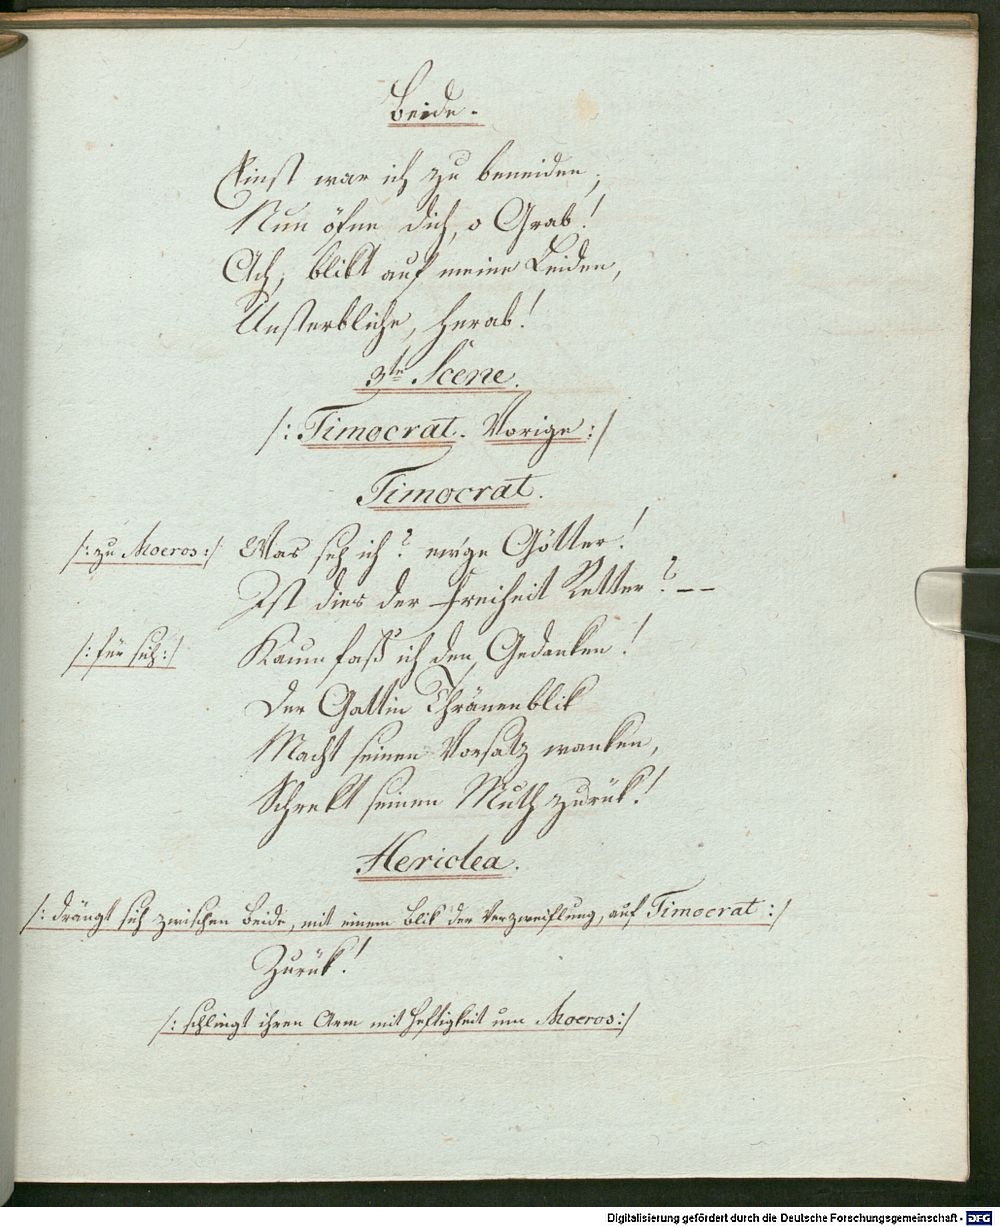 Beide.
Einst war ich zu beneiden;
Nun öfne dich, o Grab!
Ach, blikt auf meine Leiden,
Unsterbliche, herab!
3te Scene.
/: Timocrat. Vorige :/
Timocrat.
/: zu Moeros :/ Was seh ich? ew'ge Götter!
Ist dies der Freiheit Retter? --
/: für sich :/ Kaum faß ich den Gedanken!
Der Gattin Thränenblik
Macht seinen Vorsatz wanken,
Schrekt seinen Muth zurük!
Hericlea.
/: drängt sich zwischen beide, mit einem Blik der Verzweiflung, auf Timocrat :/
Zurük!
/: schlingt ihren Arm mit Heftigkeit um Moeros :/
Digitalisierung gefördert durch die Deutsche Forschungsgemeinschaft - DFG